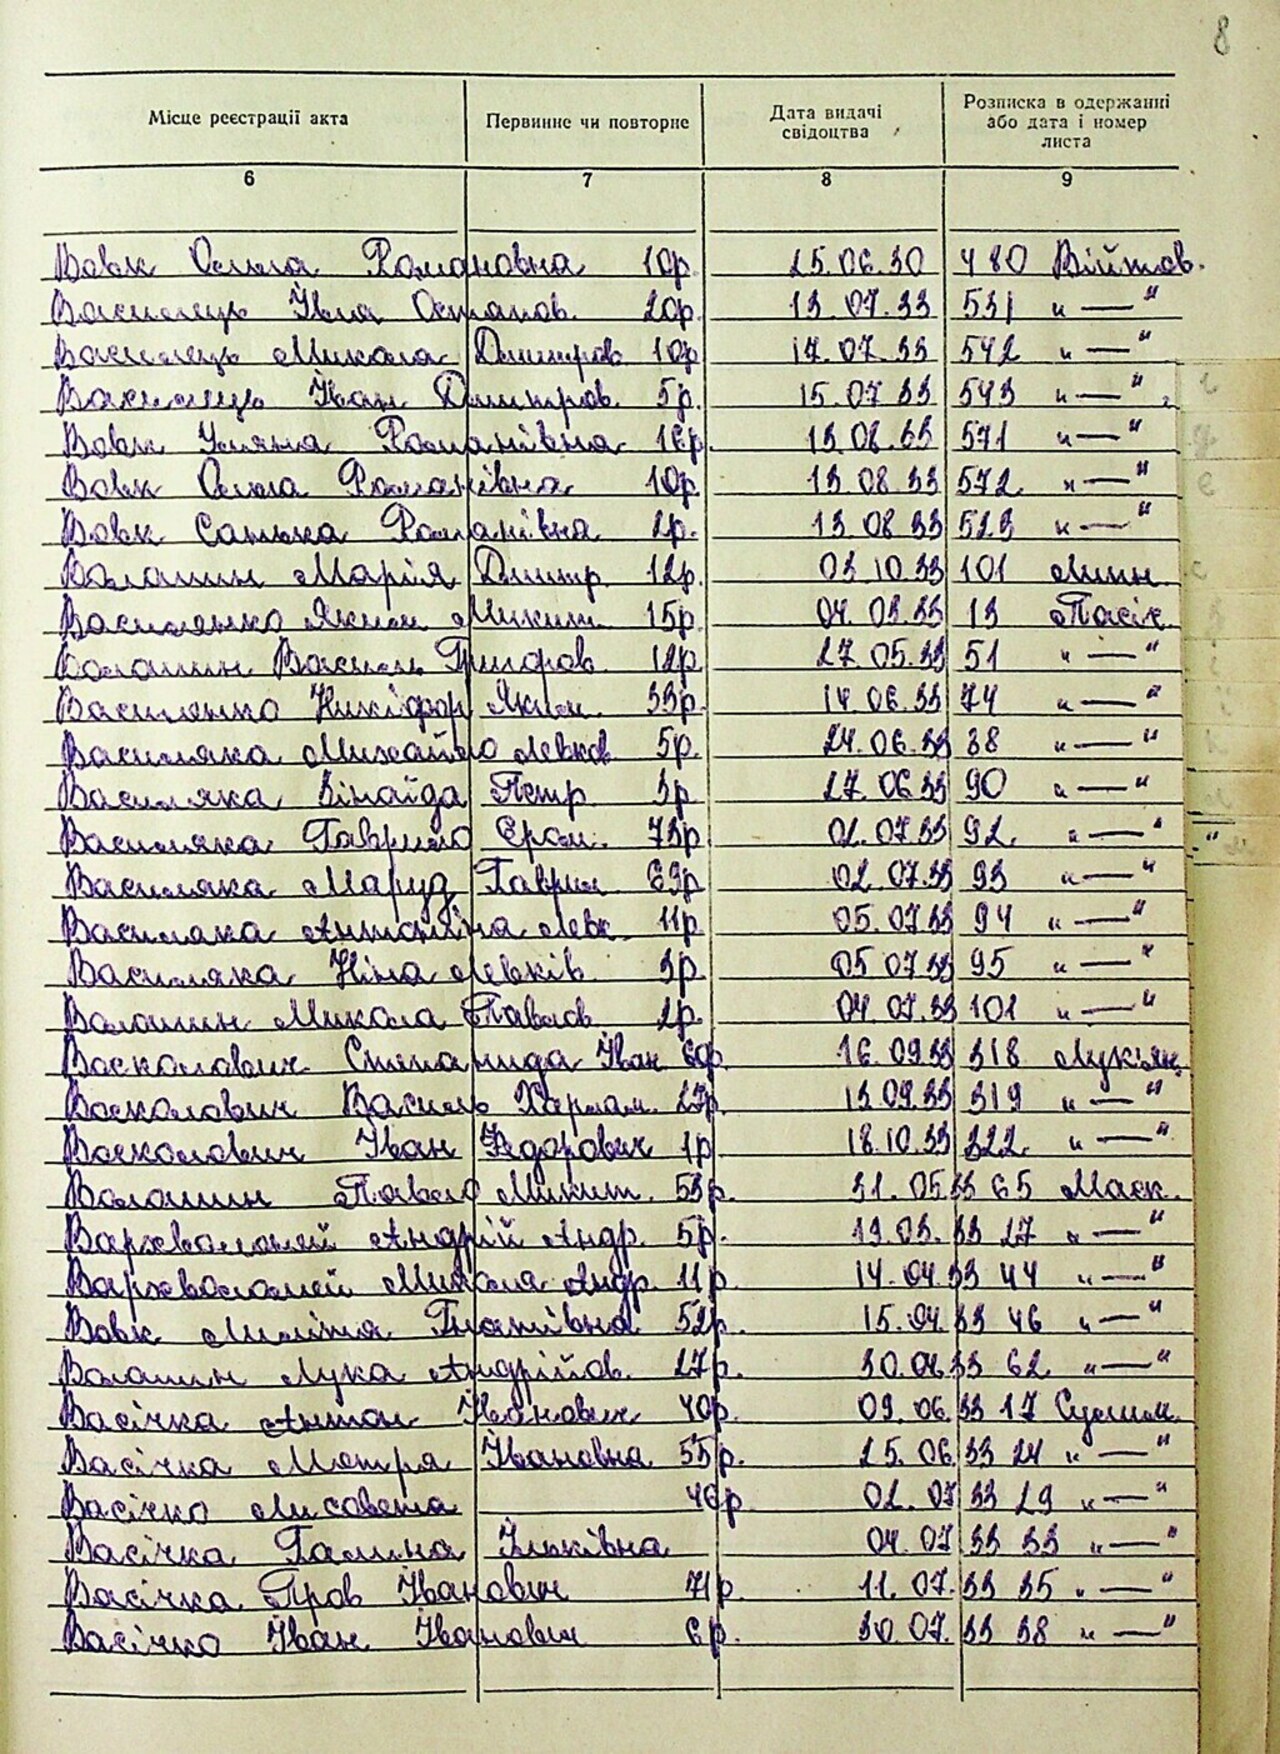 8
Місце реєстрації акта Первинне чи повторне Дата видачі свідоцтва Розписка в одержанні або дата і номер листа
6 7 8 9
Вовк Ольга Романовна 10р. 25.06.30 480 Війтов.
Василець Івга Остапов. 20р. 13.07.33 531 "—"
Василець Микола Дмитров 10р 17.07.33 542 "—"
Василець Іван Дмитров. 5р. 15.07.33 543 "—"
Вовк Уляна Романівна 16р. 13.08.33 571 "—"
Вовк Ольга Романівна 10р. 13.08.33 572 "—"
Вовк Санька Романівна 2р. 13.08.33 523 "—"
Волошин Марія Дмитр. 12р. 03.10.33 101 Мин.
Василенко Яким Микит. 15р. 04.03.33 13 Пасіч.
Волошин Василь Григоров. 12р. 27.05.33 51 "—"
Василенко Никіфор Яким. 33р. 14.06.33 74 "—"
Василяка Михайло Левков 5р. 24.06.33 88 "—"
Василяка Зінаїда Петр 3р. 27.06.33 90 "—"
Василяка Гаврило Єром. 73р. 02.07.33 92. "—"
Василяка Гаврил 63р. 02.07.33 93 "—"
Василяка Антоніна Левк. 11р. 05.07.33 94 "—"
Василяка Ніна Левків. 3р. 05.07.33 95 "—"
Волошин Микола Павлов. 2р. 04.07.33 101 "—"
Восколович Степанида Іван 60р. 16.09.33 318 Лук'ян.
Восколович Василь Харлам. 27р. 13.09.33 319 "—"
Восколович Іван Федорович 1р 18.10.33 322. "—"
Волошин Павло Микит. 53р. 31.05.33 65 Маск.
Вархоломей Андрій Андр. 5р. 19.03.33 27 "—"
Вархоломей Андр. 11р. 14.04.33 44 "—"
Вовк Гнатівна 52р. 15.04.33 46 "—"
Волошин Лука Андрійов. 27р. 30.04.33 62. "—"
Васічка Антон Іванович 40р. 09.06.33 17 Сушк.
Васічка Мотря Івановна 55р. 25.06.33 24 "—"
Васічко Лисавета 46р. 02.07.33 29 "—"
Васічка Галина Ільківна 04.07.33 33 "—"
Васічка Пров Іванович 71р. 11.07.33 35 "—"
Васічко Іван Іванович 6р. 30.07.33 38 "—"